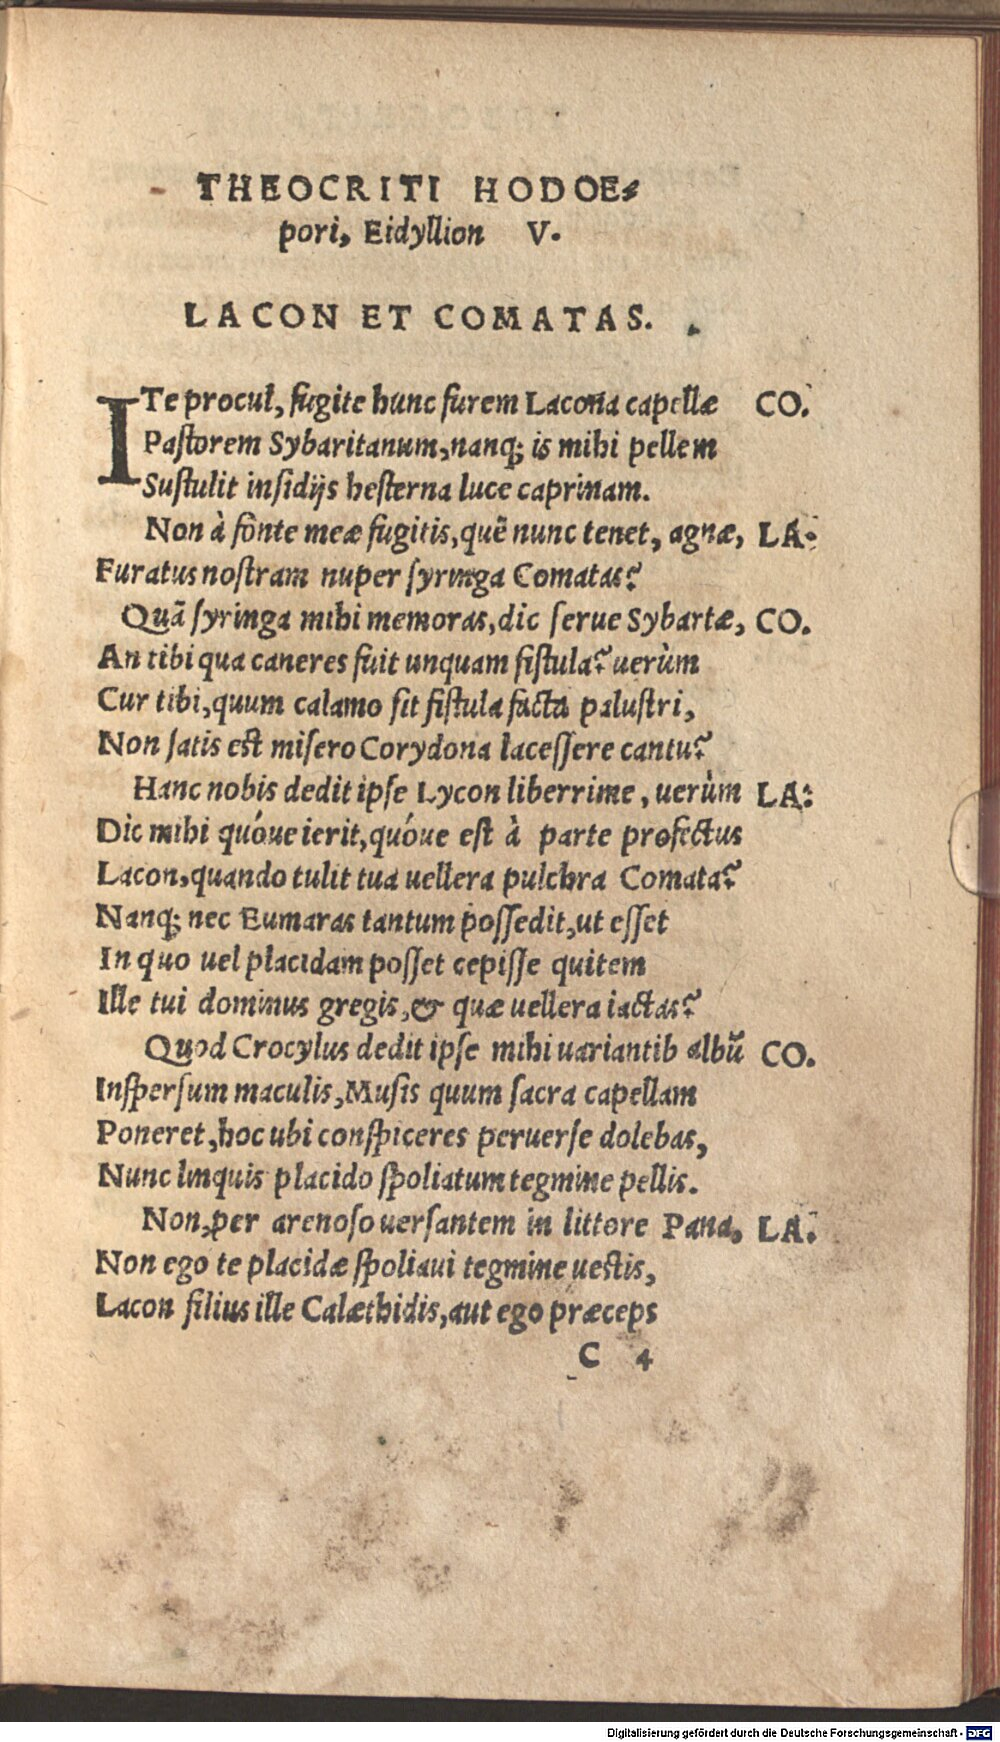 THEOCRITI HODOE-
pori, Eidyllion V.
LACON ET COMATAS.
ITe procul, fugite hunc furem Lacona capellæ CO.
Pastorem Sybaritanum, nanq; is mihi pellem
Sustulit insidijs hesterna luce caprinam.
Non à fonte meæ fugitis, quẽ nunc tenet, agnæ, LA.
Furatus nostram nuper syringa Comatas?
Quã syringa mihi memoras, dic serue Sybartæ, CO.
An tibi qua caneres fuit unquam fistula? uerùm
Cur tibi, quum calamo sit fistula facta palustri,
Non satis est misero Corydona lacessere cantu?
Hanc nobis dedit ipse Lycon liberrime, uerùm LA:
Dic mihi quóue ierit, quóue est à parte profectus
Lacon, quando tulit tua uellera pulchra Comata?
Nanq; nec Eumaras tantum possedit, ut esset
In quo uel placidam posset cepisse quitem
Ille tui dominus gregis, & quæ uellera iactas?
Quod Crocylus dedit ipse mihi uariantib albũ CO.
Inspersum maculis, Musis quum sacra capellam
Poneret, hoc ubi conspiceres peruerse dolebas,
Nunc linquis placido spoliatum tegmine pellis.
Non, per arenoso uersantem in littore Pana, LA.
Non ego te placidæ spoliaui tegmine uestis,
Lacon filius ille Calæthidis, aut ego præceps
C 4
Digitalisierung gefördert durch die Deutsche Forschungsgemeinschaft - DFG